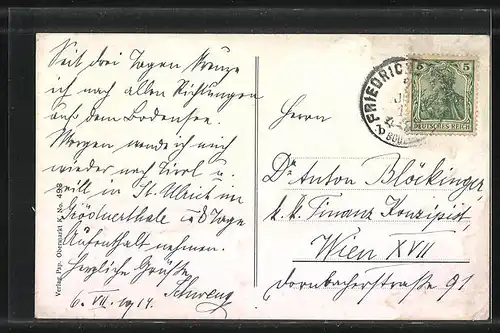 Seit drei Tagen kreuze
ich nach allen Richtungen
auf dem Bodensee.
Morgen wende ich mich
wieder nach Tirol u.
will in St. Ulrich im
Grödnerthale 8 Tage
Aufenthalt nehmen.
Herzliche Grüße
6. VII. 1914.
Verlag Pap. Obermarkt K. No. 493
FRIEDRICHS
5 5
DEUTSCHES REICH
Herrn
Dr Anton Blöckinger,
k. k. Finanz Konzipist,
Wien XVII
Dornbacherstraße 91